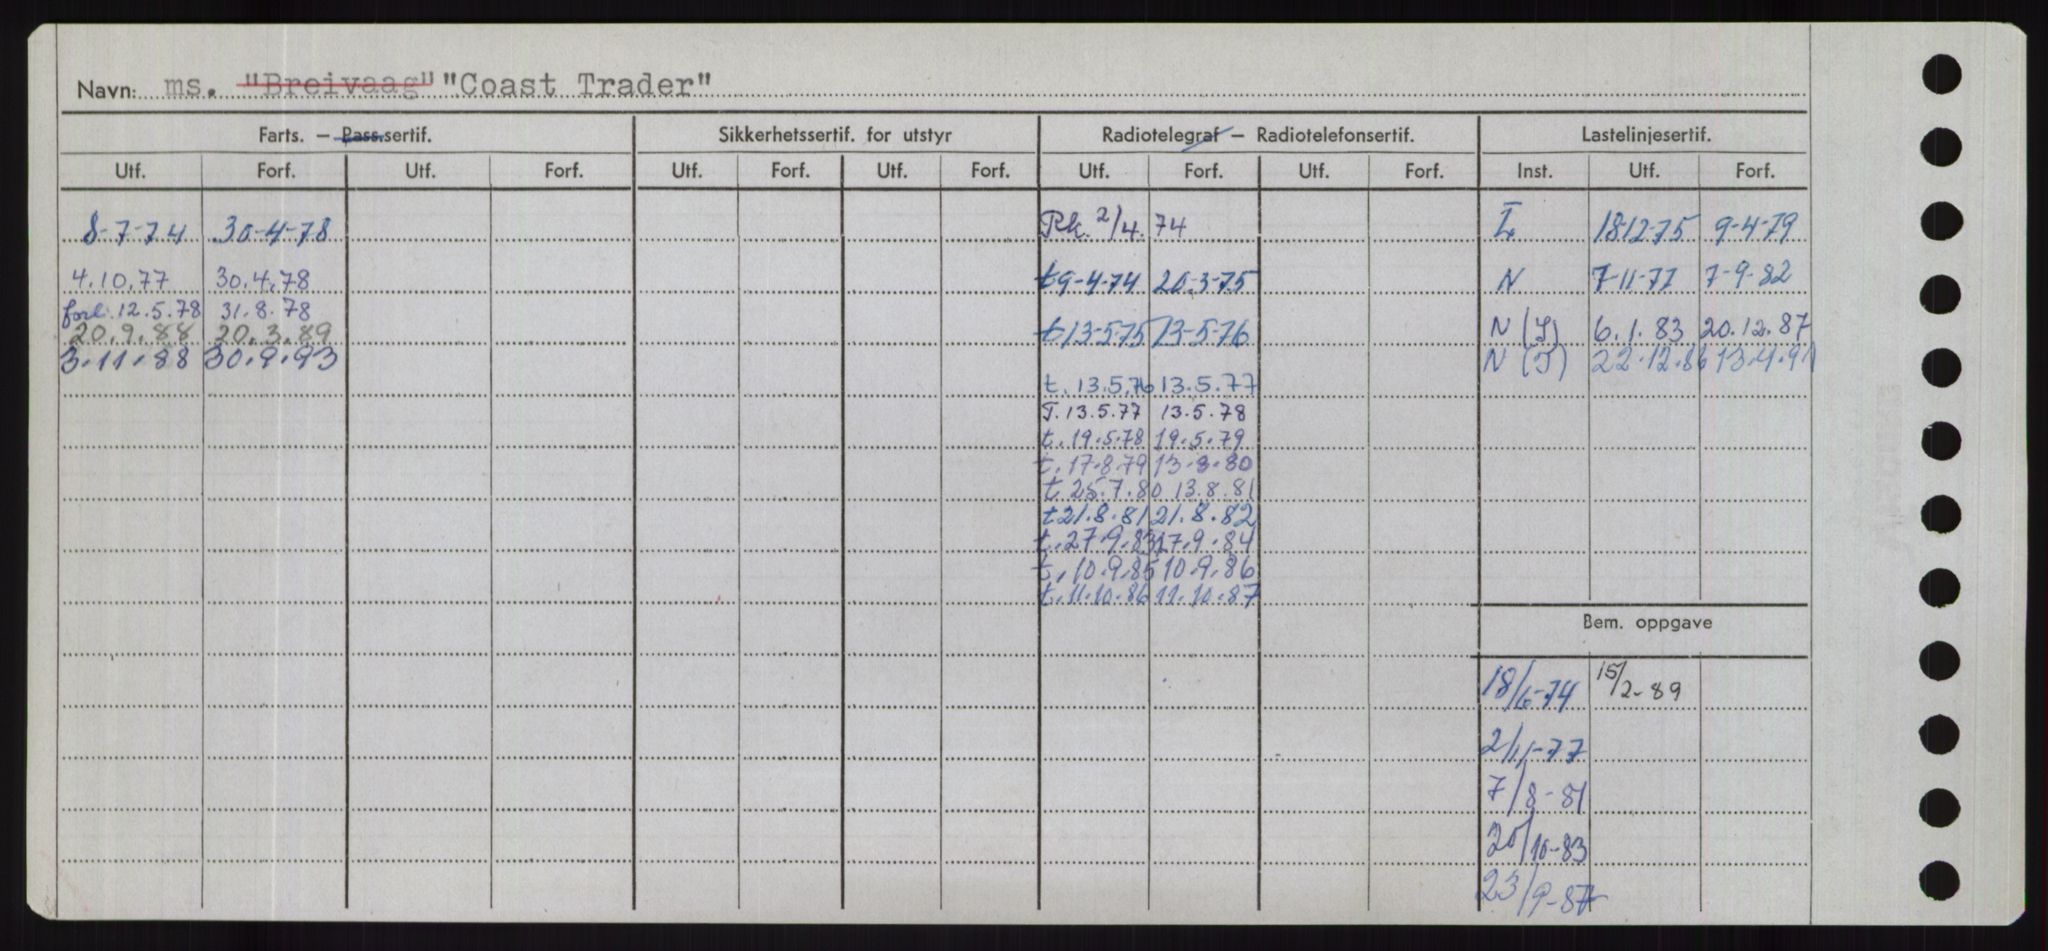 Navn: ms. "Breivaag" "Coast Trader"
Farts. – Pass.sertif. Sikkerhetssertif. for utstyr Radiotelegraf – Radiotelefonsertif. Lastelinjesertif.
Utf. Forf. Utf. Forf. Utf. Forf. Utf. Forf. Utf. Forf. Utf. Forf. Inst. Utf. Forf.
8-7-74 30-4-78 Rk. 2/4. 74 L 18-12-75 9-4-79
4.10.77 30.4.78 t 9-4-74 20-3-75 N 7-11-77 7-9-82
forl. 12.5.78 31.8.78
20.9.88 20.3.89 t 13-5-75 13-5-76 N (L) 6.1.83 20.12.87
3.11.88 30.9.93 N (T) 22.12.86 13.4.91
t. 13.5.76 13.5.77
T. 13.5.77 13.5.78
t. 19.5.78 19.5.79
t. 17.8.79 13.8.80
t 25.7.80 13.8.81
t 21.8.81 21.8.82
t. 27.9.83 27.9.84
t. 10.9.85 10.9.86
t. 11.10.86 11.10.87
Bem. oppgave
18/6-74 15/2-89
2/11-77
7/8-81
20/10-83
23/9-87